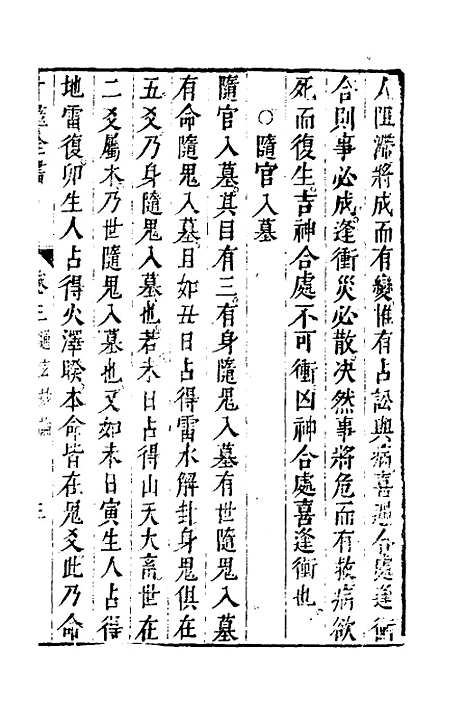 人匪滯將成而有變惟有占訟與病喜遇合處逢衝
合則事必成逢衝災必散决然事將危而有救病欲
死而復生吉神合處不可衝凶神合處喜逢衝也
○隨官入墓
隨官入墓其目有三有身隨鬼入墓有世隨鬼入墓
有命隨鬼入墓且如丑日占得雷水解卦身鬼俱在
五爻乃身隨鬼入墓也若未日占得山天大畜世在
二爻屬木乃世隨鬼入墓也又如未日寅生人占得
地雷復卯生人占得火澤睽本命皆在鬼爻此乃命
卜筮全書 卷之三 通玄妙論 三